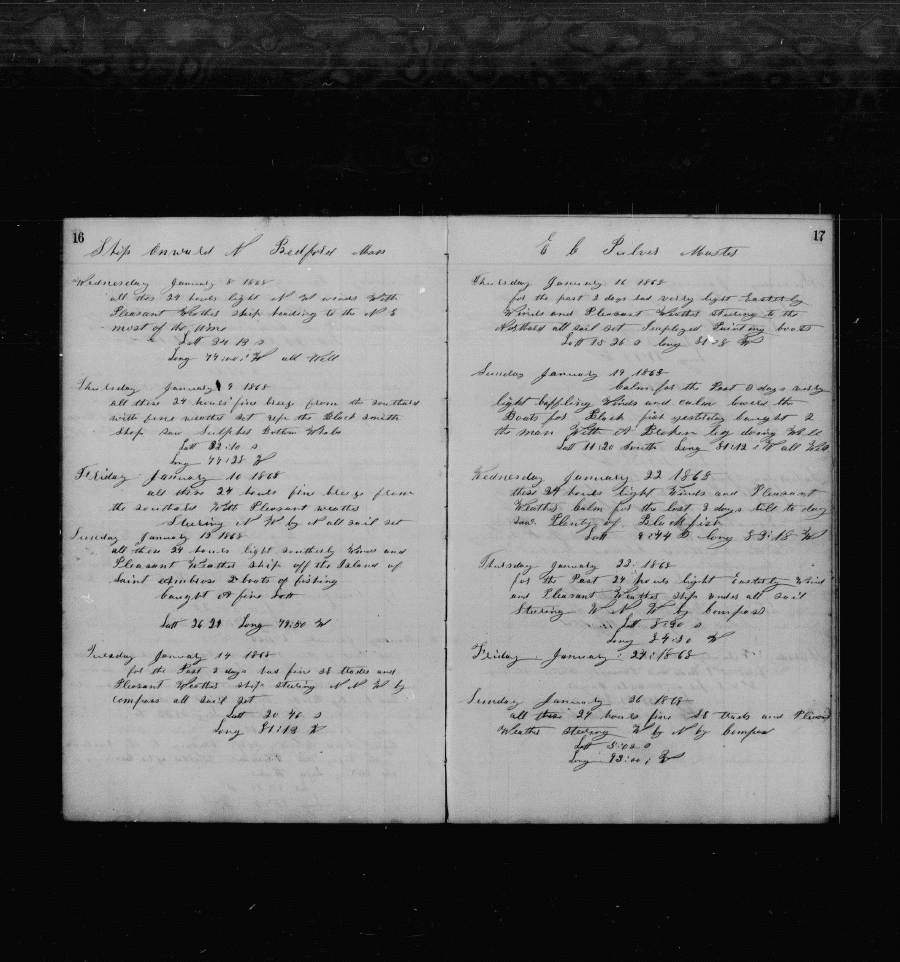 16
Ship Onward N Bedford Mass
Wednesday January 8 1868
all this 24 hours light N W winds With
Pleasant Weather ship heading to the N E
most of the time
Latt 34 13 S
Long 77:00: W all Well
Thursday January 9 1868
all these 24 hours fine breeze from the southard
with fine weather set up the Black smith
shop saw Sulpher Bottom Whale
Latt 32:10 S
Long 77:23 W
Friday January 10 1868
all these 24 hours fine breeze from
the southard With Pleasant weather
Steering N W by N all sail set
Sunday January 12 1868
all these 24 hours light southerly Winds and
Pleasant Weather ship off the Island of
Saint Ambros 2 boats of fishing
Caught A fine Lott
Latt 26 29 Long 79:50 W
Tuesday January 14 1868
for the Past 2 days had fine SE trades and
Pleasant Weather ship steering N N W by
compass all sail set
Latt 20 46 S
Long 81:13 W
17
E C Pulver Master
Thursday January 16 1868
for the past 2 days had verry light Easterly
Winds and Pleasant Weather Steering to the
Northard all sail set Imployed Painting boats
Latt 15 26 S long 81 28 W
Sunday January 19 1868
Calm for the Past 3 days verry
light baffling Winds and calm lowered the
Boats for Black fish yesterday caught 2
the man With A Broken leg doing Well
Latt 11:20 South Long 81:12 W all Well
Wednesday January 22 1868
these 24 hours light Winds and Pleasant
Weather Calm for the last 3 days till to day
saw Plenty of Blackfish
Latt 9:44 S long 83:18 W
Thursday January 23: 1868
for the Past 24 hours light Easterly Wind
and Pleasant Weather ship under all sail
Steering W N W by Compass
Latt 8:30 S
Long 84:30 W
Friday January: 24: 1868
Sunday January 26 1868
all these 24 hours fine SE trads and Pleasant
Weather steering W by N by Compass
Latt 5:02 S
Long 93:00: W